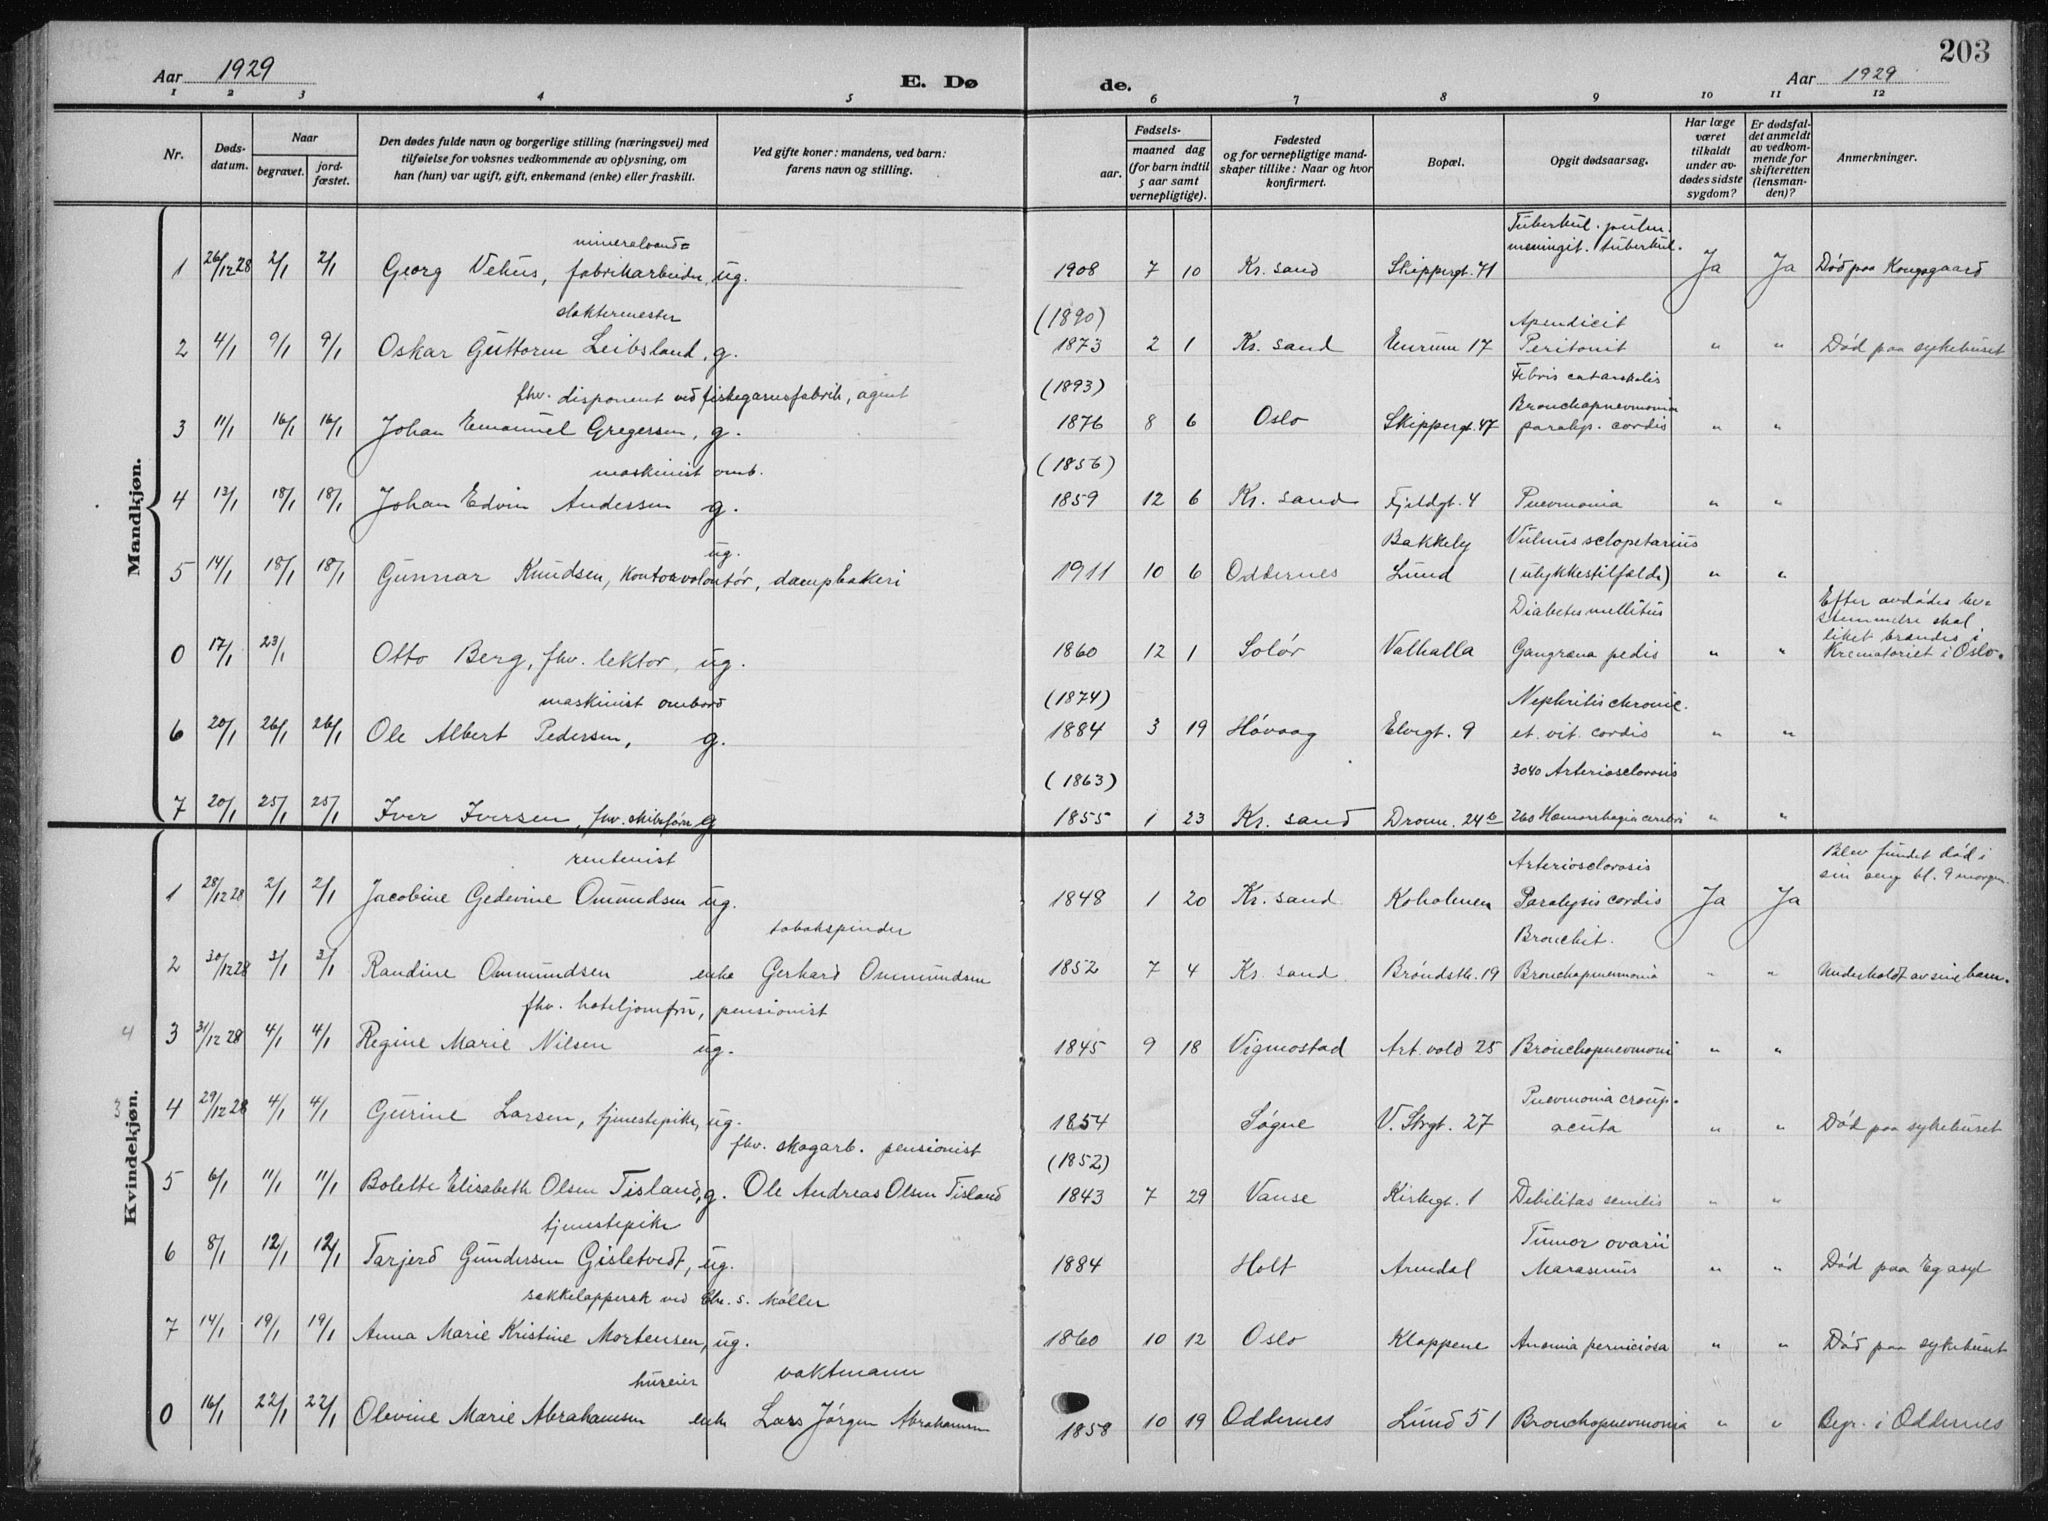 203
Aar 1929
E. Dø
de.
Aar 1929
1 2 3 4 5 6 7 8 9 10 11 12
Nr.
Døds-
datum.
Naar
begravet.
jord-
fæstet.
Den dødes fulde navn og borgerlige stilling (næringsvei) med
tilføielse for voksnes vedkommende av oplysning, om
han (hun) var ugift, gift, enkemand (enke) eller fraskilt.
Ved gifte koner: mandens, ved barn:
farens navn og stilling.
Fødsels-
aar.
maaned dag
(for barn indtil
5 aar samt
vernepligtige).
Fødested
og for vernepligtige mand-
skaper tillike: Naar og hvor
konfirmert.
Bopæl.
Opgit dødsaarsag.
Har læge
været
tilkaldt
under av-
dødes sidste
sygdom?
Er dødsfal-
det anmeldt
av vedkom-
mende for
skifteretten
(lensman-
den)?
Anmerkninger.
Mandkjøn.
mineralvand= Tuberkul. pulm.
meningit. tuberkul.
1 26/12 28 2/1 2/1 Georg Vehus, fabrikarbeider, ug. 1908 7 10 Kr. sand Skippergt. 41 Ja Ja Død paa Kongsgaard
slaktermester (1890) Apendicit
2 4/1 9/1 9/1 Oskar Guttorm Leibsland, g. 1873 2 1 Kr. sand Enrum 17 Peritonit " " Død paa sykehuset
fhv. disponent ved fiskegarnsfabrik, agent (1893) Febris catarrhalis
Bronchopnevmonia
3 11/1 16/1 16/1 Johan Emanuel Gregersen, g. 1876 8 6 Oslo Skippergt. 47 paralys. cordis " "
maskinist omb. (1856)
4 13/1 18/1 18/1 Johan Edvin Andersen g. 1859 12 6 Kr. sand Fjeldgt. 4 Pnevmonia " "
ug. Bakkely Vulnus sclopetarius
5 14/1 18/1 18/1 Gunnar Knudsen, kontorvolontør, dampbakeri 1911 10 6 Oddernes Lund (ulykkestilfælde) " "
Diabetes mellitus Efter avdødes be=
stemmelse skal
liket brændes i
0 17/1 23/1 Otto Berg, fhv. lektor, ug. 1860 12 1 Solør Valhalla Gangræna pedis " " Krematoriet i Oslo.
maskinist ombord (1874) Nephritis chronic.
6 20/1 26/1 26/1 Ole Albert Pedersen, g. 1884 3 19 Høvaag Elvegt. 9 et. vit. cordis " "
(1863) 3040 Arteriosclerosis
7 20/1 25/1 25/1 Iver Iversen, fhv. skibsfører g 1855 1 23 Kr. sand Dronn. 24 b 260 Hæmorrhagia cerebri " "
Kvindekjøn.
rentenist Arteriosclerosis Blev fundet død i
sin seng kl. 9 morgen.
1 28/12 28 2/1 2/1 Jacobine Gedevine Omundsen ug. 1848 1 20 Kr. sand Koholmen Paralysis cordis Ja Ja
tobakspinder Bronchit.
2 30/12 28 3/1 3/1 Randine Ommundsen enke Gerhard Ommundsen 1852 7 4 Kr. sand Brøndstk. 19 Bronchopneumonia " " Underholdt av sine barn.
fhv. hoteljomfru, pensionist
4 3 31/12 28 4/1 4/1 Regine Marie Nilsen ug. 1845 9 18 Vigmostad Art. vold 25 Bronchopnevmoni " "
Pnevmonia croup.
3 4 29/12 28 4/1 4/1 Gurine Larsen, tjenestepike, ug. 1854 Søgne V. Strgt. 27 acuta " " Død paa sykehuset
fhv. skogarb. pensionist (1852)
5 6/1 11/1 11/1 Bolette Elisabeth Olsen Tisland, g. Ole Andreas Olsen Tisland 1843 7 29 Vanse Kirkegt. 1 Debilitas senilis " "
tjenestepike Tumor ovarii
6 8/1 12/1 12/1 Tarjerd Gundersen Gisletvedt, ug. 1884 Holt Arendal Marasmus " " Død paa Eg asyl
sækkelapperske ved Chr. S. Møller
7 14/1 19/1 19/1 Anna Marie Kristine Mortensen, ug. 1860 10 12 Oslo Kloppene Anæmia perniciosa " " Død paa sykehuset
huseier vaktmann
0 16/1 22/1 22/1 Olevine Marie Abrahamsen enke Lars Jørgen Abrahamsen 1858 10 19 Oddernes Lund 51 Bronchopnevmonia " " Begr. i Oddernes